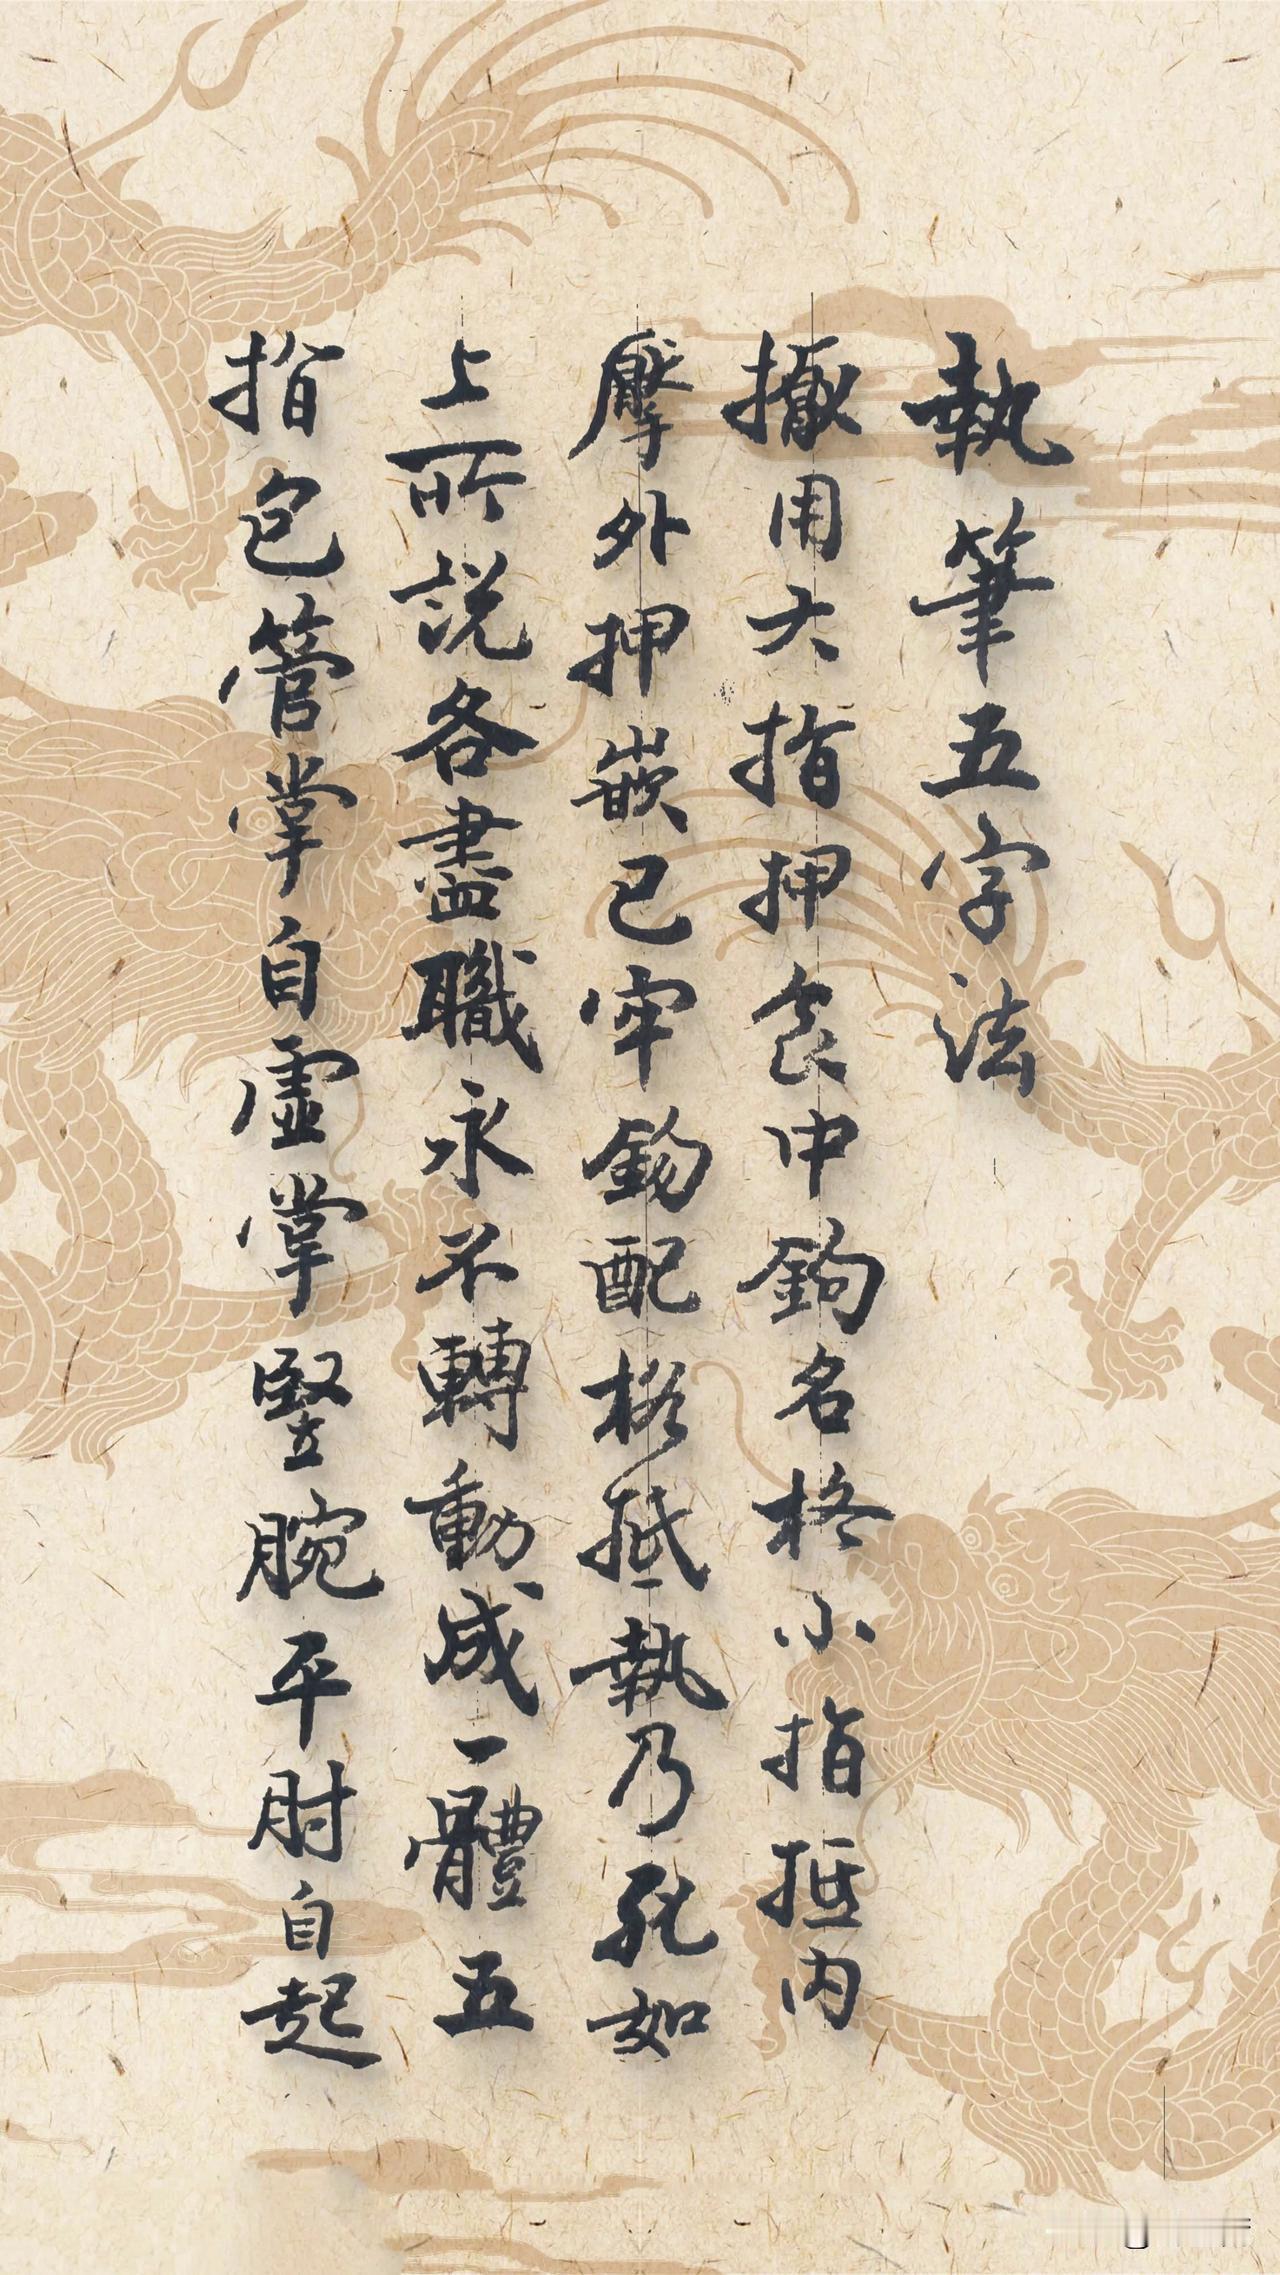 執筆五字法
擫用大指押食中鉤名格小指抵內
擪外押嵌已牢鉤配格抵執乃死如
上所說各盡職永不轉動成一體五
指包管掌自虛掌豎腕平肘自起